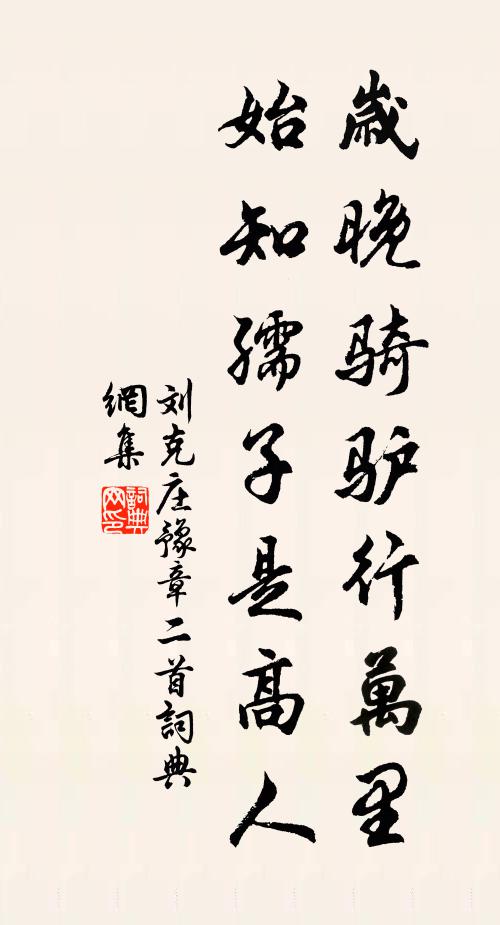 歲晚骑驴行萬里
始知孺子是高人
刘克庄豫章二首詞典
網集
詞典
网印